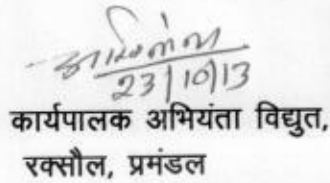 23/10/13
कार्यपालक अभियंता विद्युत,
रक्सौल, प्रमंडल